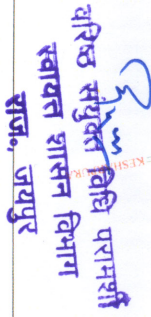 वरिष्ठ संयुक्त विधि परामर्शी
स्वायत्त शासन विभाग
राज., जयपुर